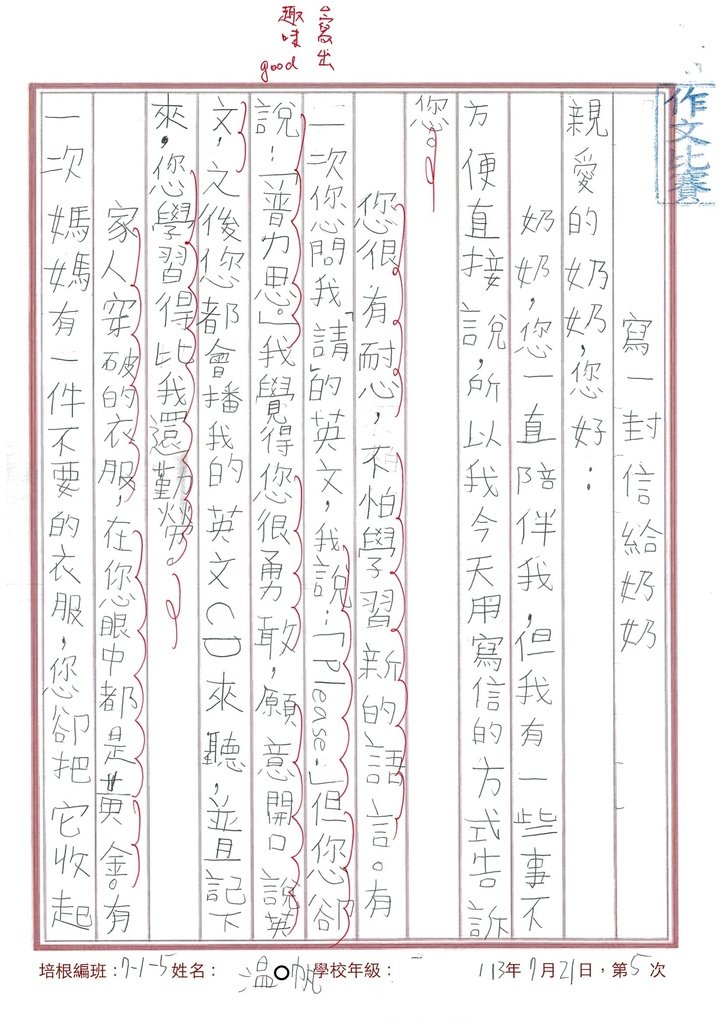 寫出
趣味
good
作文比賽
寫一封信給奶奶
親愛的奶奶,您好:
奶奶,您一直陪伴我,但我有一些事不
方便直接說,所以我今天用寫信的方式告訴
您。
您很有耐心,不怕學習新的語言。有
一次你您問我「請」的英文,我說:「Please.」但您卻
說:「普力思。」我覺得您很勇敢,願意開口說英
文,之後您都會播我的英文CD來聽,並且記下
來,您學習得比我還勤勞。
家人穿破的衣服,在您眼中都是黃金。有
一次媽媽有一件不要的衣服,您卻把它收起
培根編班:7-1-5 姓名:溫○帆 學校年級:一 113年7月21日,第5次